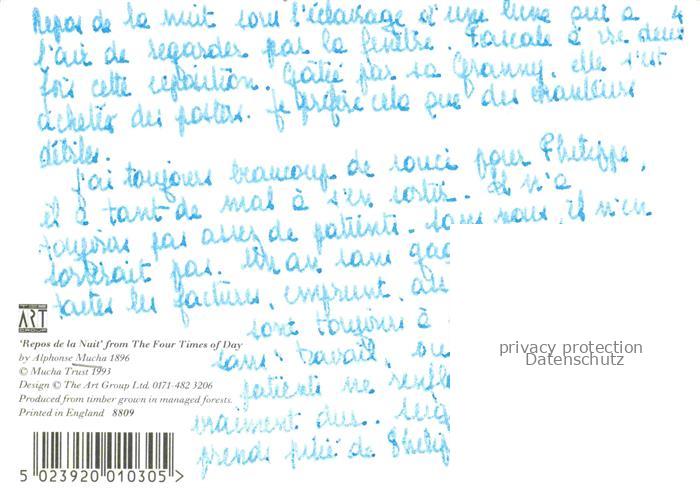 Repos de la nuit sous l'éclairage d'une lune qui a 4
l'air de regarder par la fenêtre. Pascale a vu deux
fois cette exposition. Gâtée par sa Granny, elle s'est
acheté des posters. Je préfère cela que des chanteurs
débiles.
J'ai toujours beaucoup de souci pour Philippe,
il a tant de mal à s'en sortir. Il n'a
toujours pas assez de patients. Sans nous, il n'en
sortirait pas. Un an sans
toutes les factures, emprunt,
sont toujours à
sans travail, ou
patients ne
vraiment dur.
prends pitié de
ART
'Repos de la Nuit' from The Four Times of Day
by Alphonse Mucha 1896
© Mucha Trust 1993
Design © The Art Group Ltd. 0171-482 3206
Produced from timber grown in managed forests.
Printed in England 8809
5 023920 010305 >
privacy protection
Datenschutz